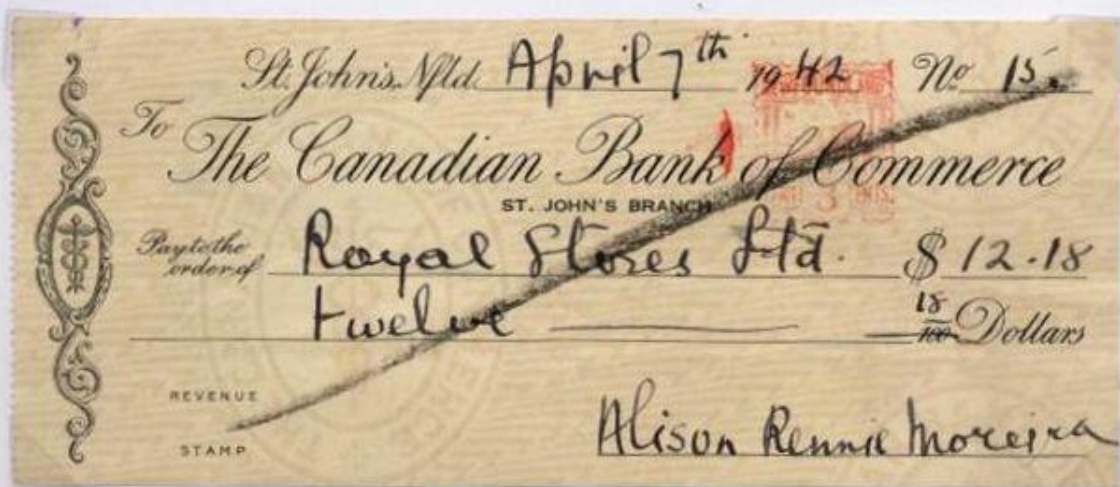 St. John's, Nfld. April 7th 1942 No 15.
To The Canadian Bank of Commerce
ST. JOHN'S BRANCH
Pay to the order of Royal Stores Ltd. $ 12.18
twelve 18/100 Dollars
REVENUE
STAMP
Alison Rennie Moreira